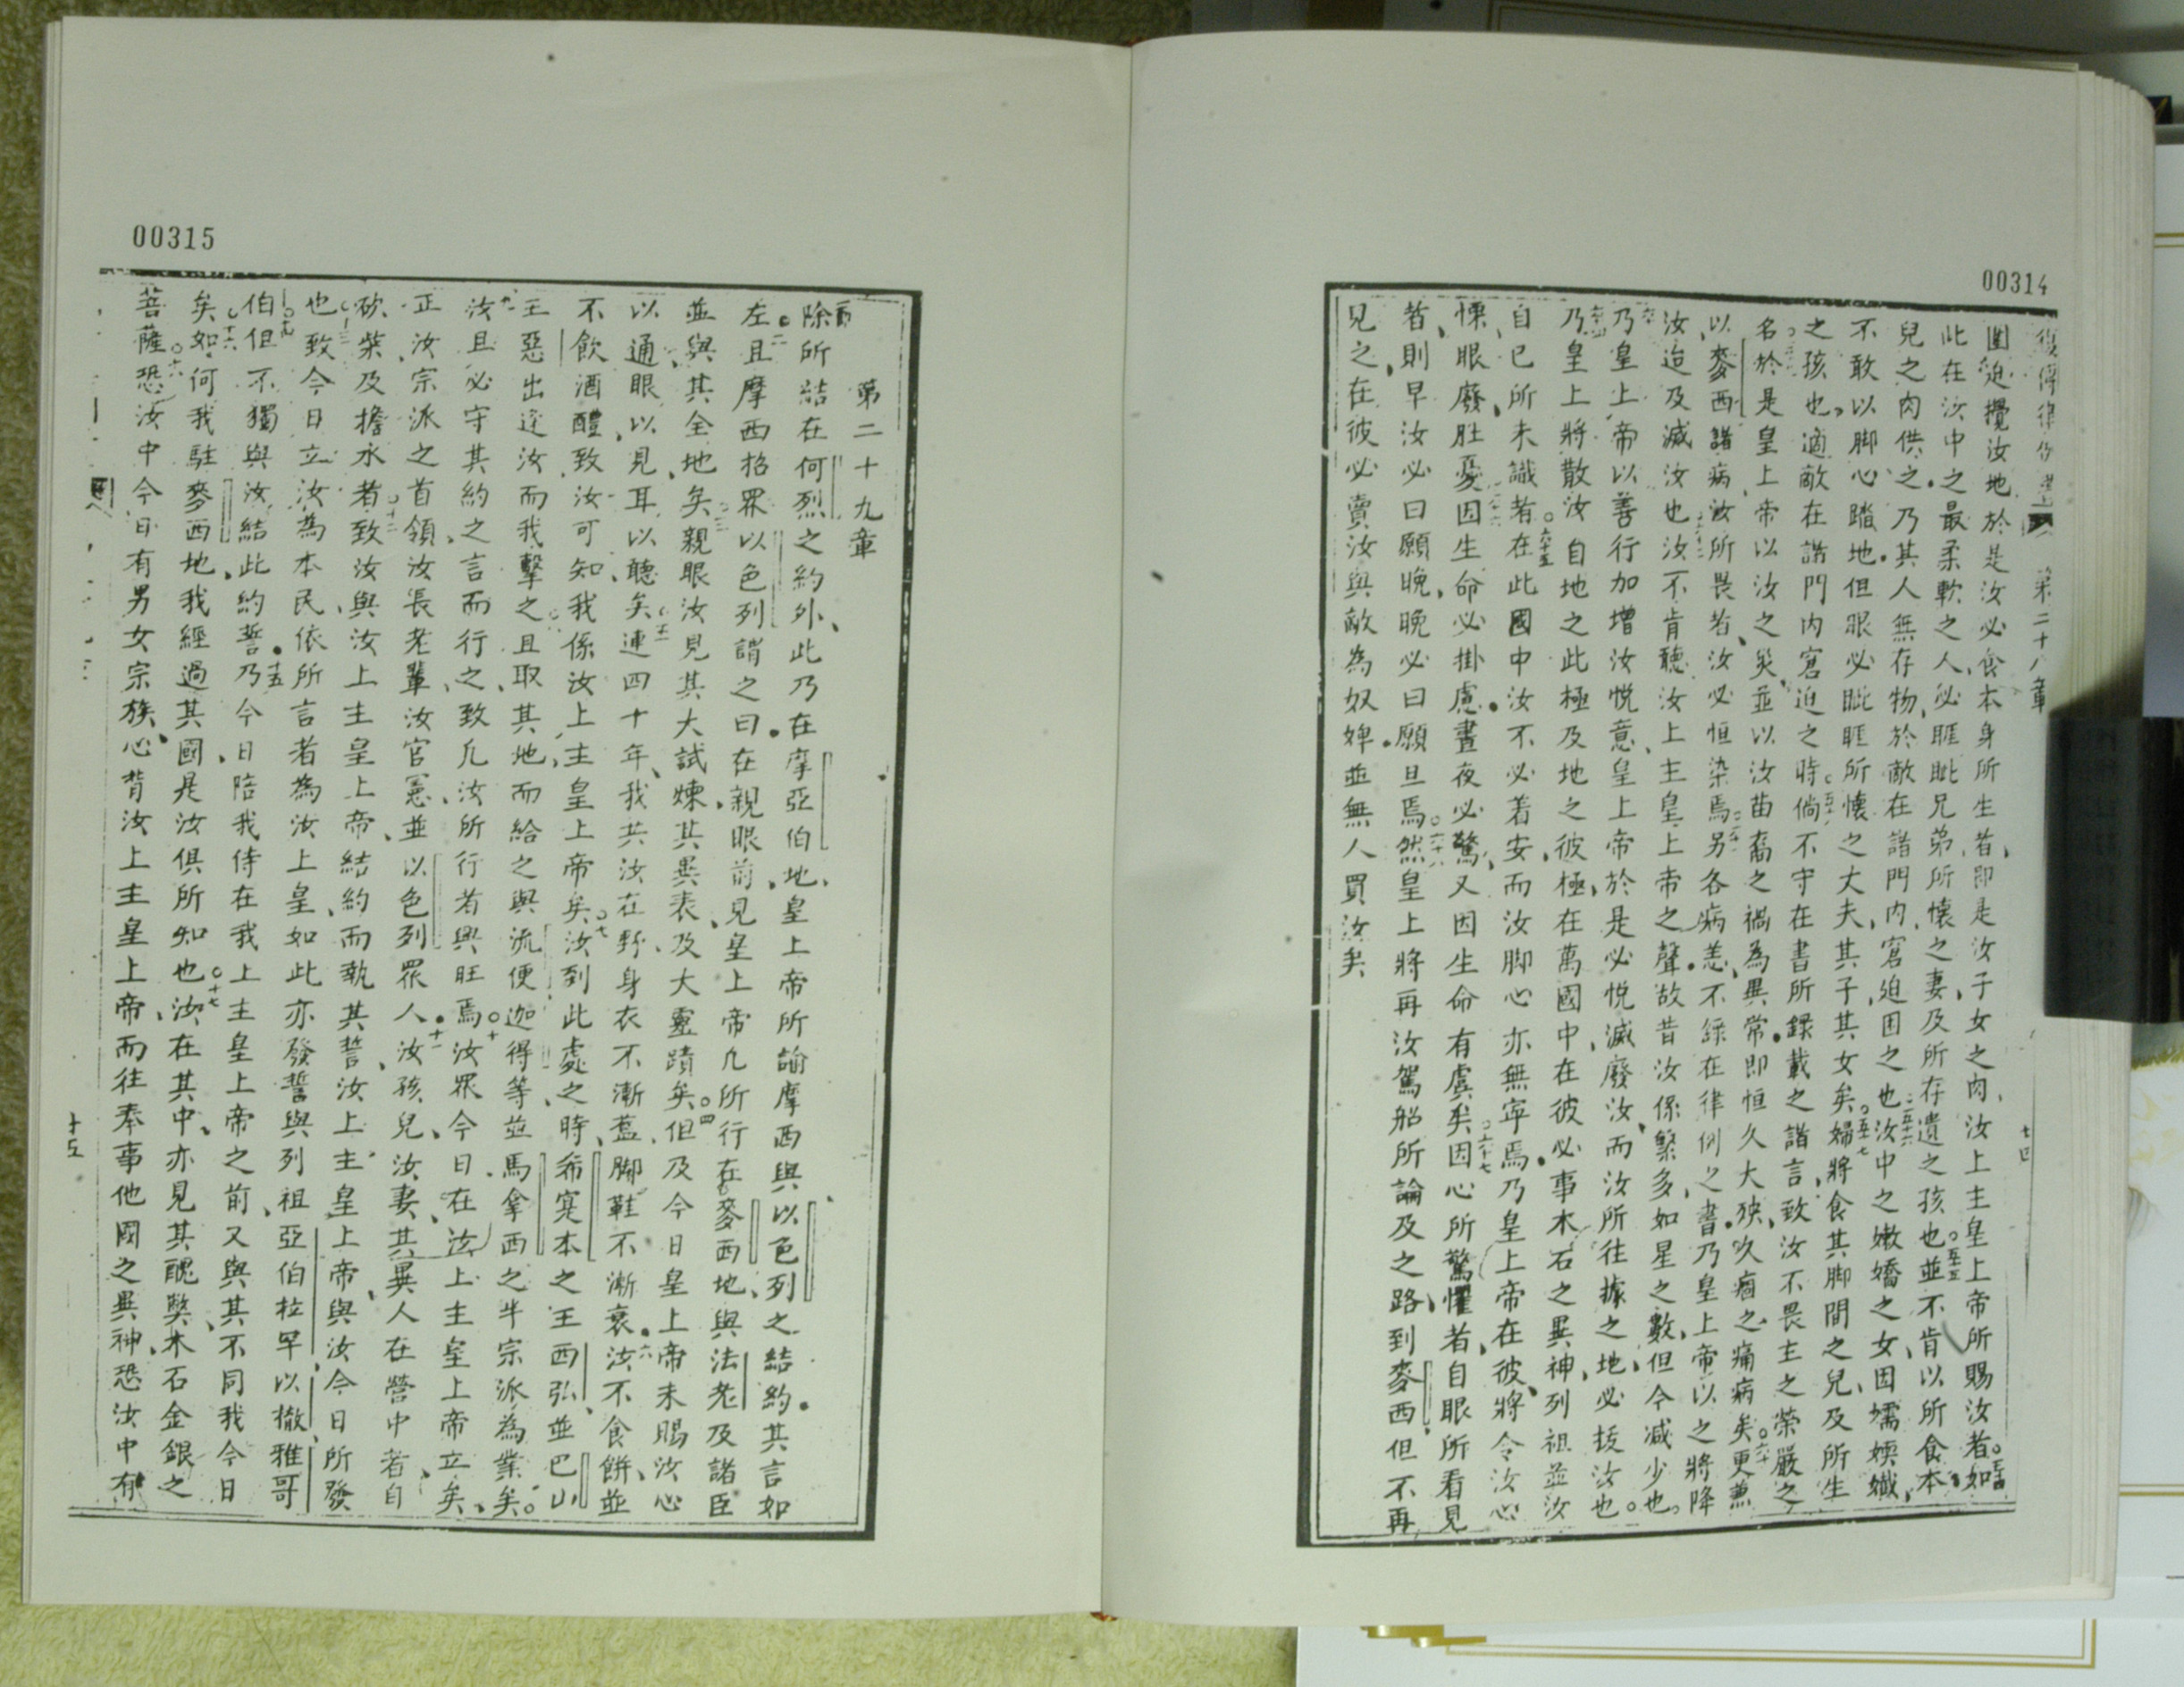 00314
復傳律例書 第二十八章
圍迫攪汝地於是汝必食本身所生者即是汝子女之肉汝上主皇上帝所賜汝者如
此在汝中之最柔軟之人必睚眦兄弟所懷之妻及所存遺之孩也並不肯以所食本
兒之肉供之乃其人無存物於敵在諸門內窘迫困之也汝中之嫩嬌之女因嬬媆孅
不敢以脚心踏地但眼必眦睚所懷之大夫其子其女矣婦將食其脚間之兒及所生
之孩也適敵在諸門內窘迫之時倘不守在書所錄載之諸言致汝不畏主之榮嚴之
名於是皇上帝以汝之災並以汝苗裔之禍為異常即恒久大殃久痼之痛病矣更兼
以麥西諸病汝所畏者汝必恒染焉另各病恙不錄在律例之書乃皇上帝以之將降
汝迨及滅汝也汝不肯聽汝上主皇上帝之聲故昔汝係繁多如星之數但今減少也
乃皇上帝以善行加增汝悅意皇上帝於是必悅滅廢汝而汝所往據之地必拔汝也
乃皇上將散汝自地之此極及地之彼極在萬國中在彼必事木石之異神列祖並汝
自已所未識者在此國中汝不必着安而汝脚心亦無寧焉乃皇上帝在彼將令汝心
慄眼廢肚憂因生命必掛慮晝夜必驚又因生命有虞矣因心所驚懼者自眼所看見
者則早汝必曰願晚晚必曰願旦焉然皇上將再汝駕船所論及之路到麥西但不再
見之在彼必賣汝與敵為奴婢並無人買汝矣
00315
第二十九章
除所結在何烈之約外此乃在摩亞伯地皇上帝所諭摩西與以色列之結約其言如
左且摩西招眾以色列謂之曰在親眼前見皇上帝凡所行在麥西地與法老及諸臣
並與其全地矣親眼汝見其大試煉其異表及大靈蹟矣但及今日皇上帝未賜汝心
以通眼以見耳以聽矣連四十年我共汝在野身衣不漸舊脚鞋不漸衰汝不食餅並
不飲酒醴致汝可知我係汝上主皇上帝矣汝到此處之時希寔本之王西弘並巴山
王惡出迎汝而我擊之且取其地而給之與流便迦得等並馬拿西之半宗派為業矣
汝且必守其約之言而行之致凡汝所行者興旺焉汝眾今日在汝上主皇上帝立矣
正汝宗派之首領汝長老輩汝官憲並以色列眾人汝孩兒汝妻其異人在營中者自
砍柴及擔水者致汝與汝上主皇上帝結約而執其誓汝上主皇上帝與汝今日所發
也致今日立汝為本民依所言者為汝上皇如此亦發誓與列祖亞伯拉罕以撒雅哥
伯但不獨與汝結此約誓乃今日陪我侍在我上主皇上帝之前又與其不同我今日
矣如何我駐麥西地我經過其國是汝俱所知也汝在其中亦見其醜獘木石金銀之
菩薩恐汝中今日有男女宗族心背汝上主皇上帝而往奉事他國之異神恐汝中有
十五